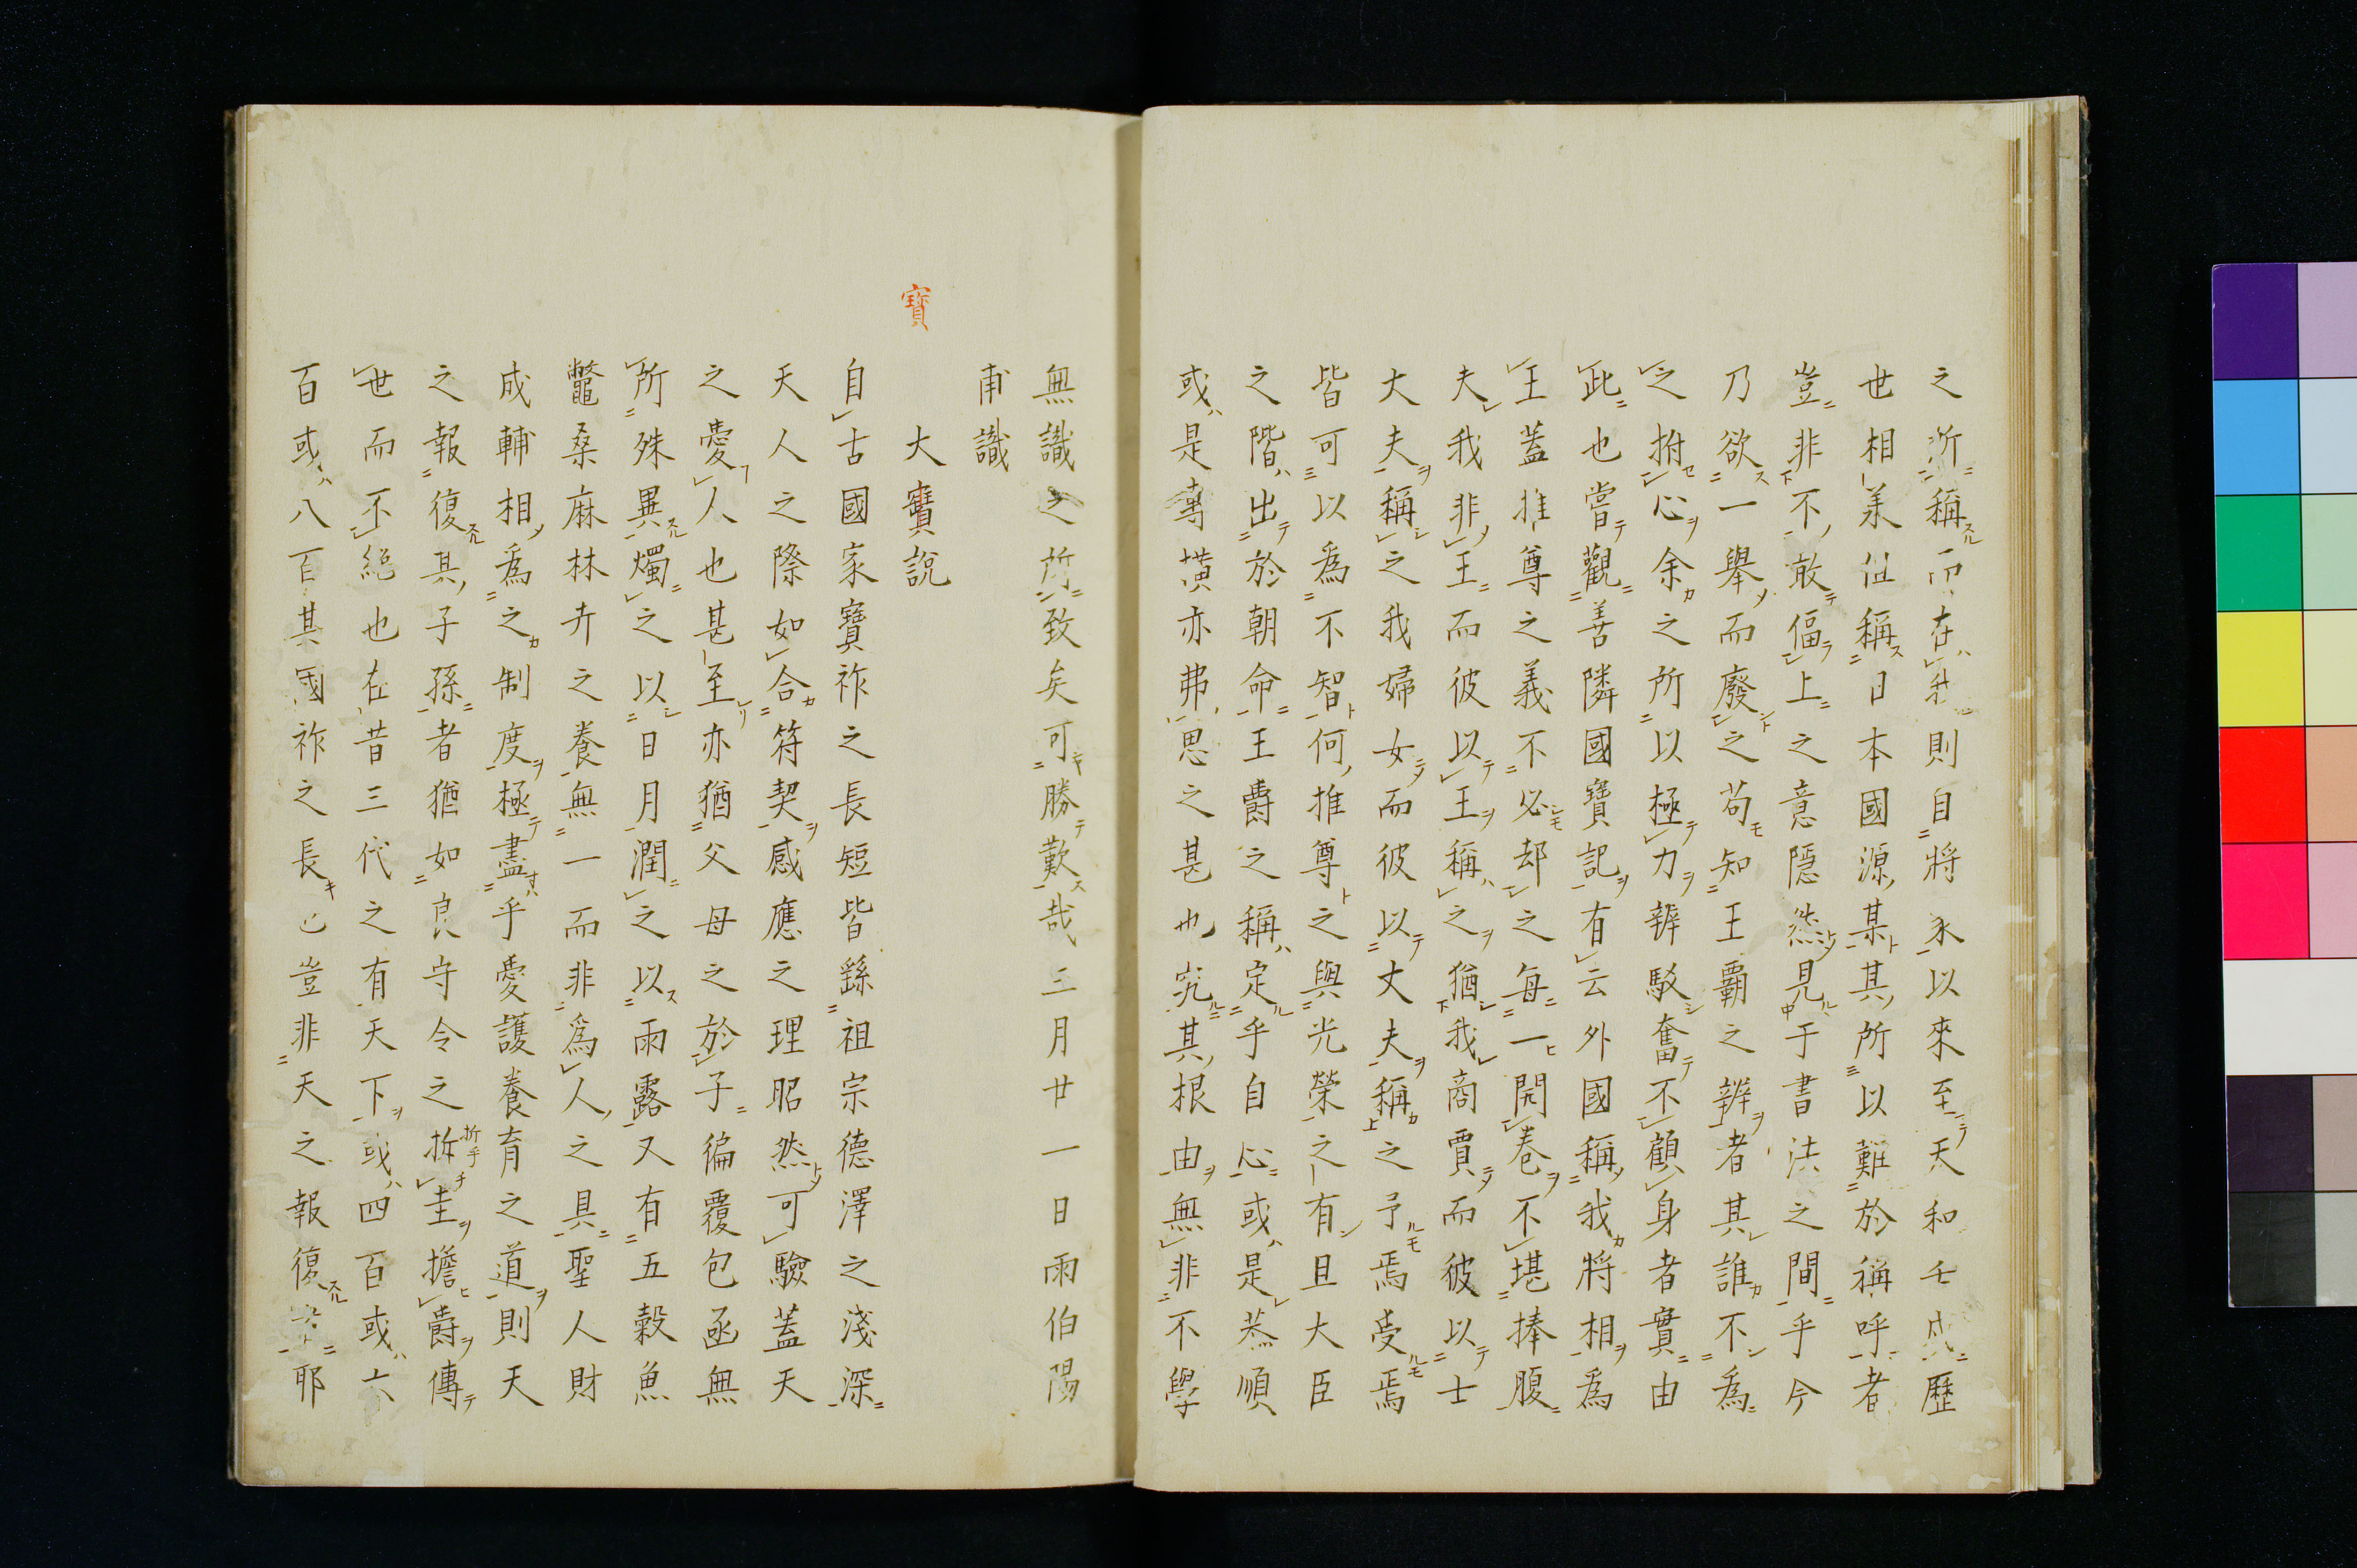 之所稱而在我則自將承以來至天和壬戌歷
世相羕但稱日本國源某其所以難於稱呼者
豈非不敢偪上之意隱然見于書法之間乎今
乃欲一舉而廢之苟知王覇之辨者其誰不為
之拊心余之所以極力辨駁奮不顧身者實由
此也嘗觀善隣國寶記有云外國稱我將相為
王蓋推尊之義不必却之每一開巻不堪捧腹
夫我非王而彼以王稱之猶我商賈而彼以士
大夫稱之我婦女而彼以丈夫稱之予焉受焉
皆可以為不智何推尊之與光榮之有且大臣
之階出於朝命王爵之稱定乎自心或是恭順
或是專橫亦弗思之甚也究其根由無非不學
無識之所致矣可勝歎哉三月廿一日雨伯陽
甫識
大寶說
寶
自古國家寶祚之長短皆繇祖宗德澤之淺深
天人之際如合符契感應之理昭然可驗蓋天
之愛人也甚至亦猶父母之於子徧覆包函無
所殊異燭之以日月潤之以雨露又有五穀魚
鼈桑麻林卉之養無一而非為人之具聖人財
成輔相為之制度極盡乎愛護養育之道則天
之報復其子孫者猶如良守令之折圭擔爵傳
世而不絕也在昔三代之有天下或四百或六
百或八百其國祚之長也豈非天之報復耶